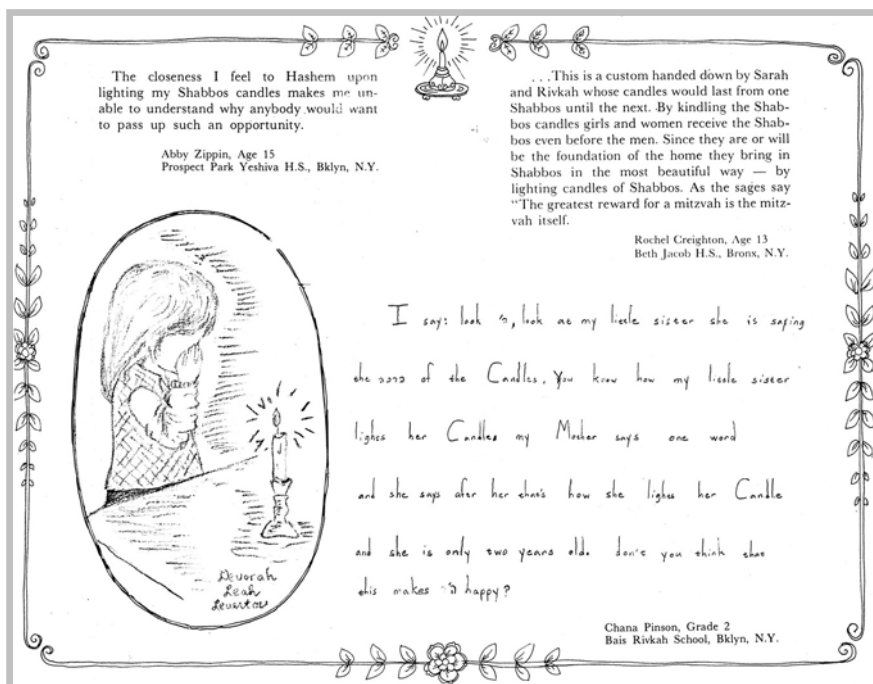 The closeness I feel to Hashem upon
lighting my Shabbos candles makes me un-
able to understand why anybody would want
to pass up such an opportunity.
Abby Zippin, Age 15
Prospect Park Yeshiva H.S., Bklyn, N.Y.
. . .This is a custom handed down by Sarah
and Rivkah whose candles would last from one
Shabbos until the next. By kindling the Shab-
bos candles girls and women receive the Shab-
bos even before the men. Since they are or will
be the foundation of the home they bring in
Shabbos in the most beautiful way — by
lighting candles of Shabbos. As the sages say
"The greatest reward for a mitzvah is the mitz-
vah itself.
Rochel Creighton, Age 13
Beth Jacob H.S., Bronx, N.Y.
I say: look ה', look at my little sister she is saying
the ברכה of the Candles. You know how my little sister
lights her Candles my Mother says one word
and she says after her that's how she lights her Candle
and she is only two years old. don't you think that
this makes ה' happy?
Chana Pinson, Grade 2
Bais Rivkah School, Bklyn, N.Y.
Devorah
Leah
Levertov